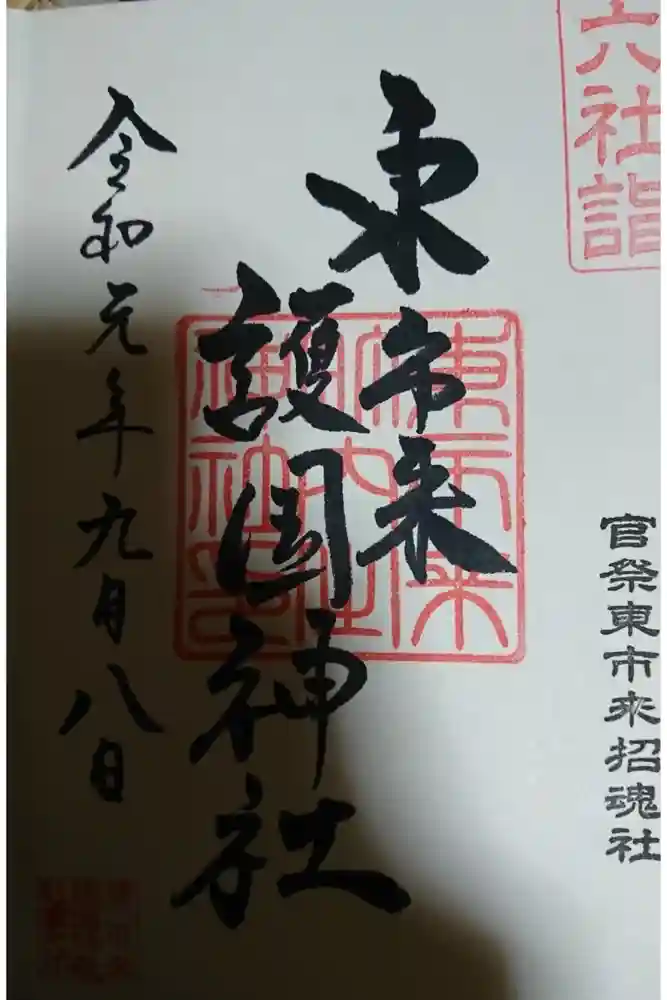 六社詣
官祭東市来招魂社
東市来
護国神社
令和元年九月八日